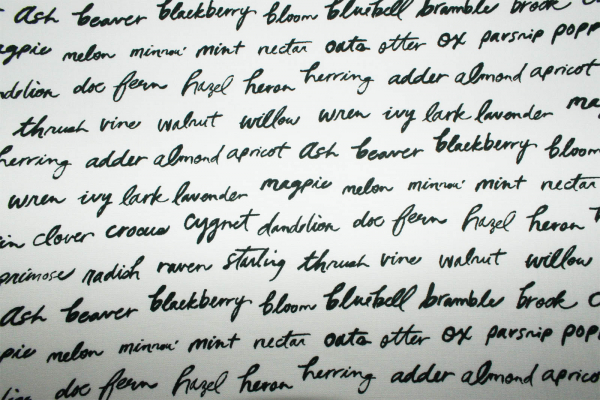 Ash beaver blackberry bloom bluebell bramble brook
magpie melon minnow mint nectar oats otter ox parsnip
doe fern hazel heron herring adder almond apricot
thrush vine walnut willow wren ivy lark lavender
herring adder almond apricot ash beaver blackberry bloom
wren ivy lark lavender magpie melon minnow mint nectar
clover crocus cygnet dandelion doe fern hazel heron
primose radish raven starling thrush vine walnut willow
Ash beaver blackberry bloom bluebell bramble brook
melon minnow mint nectar oats otter ox parsnip
doe fern hazel heron herring adder almond apricot